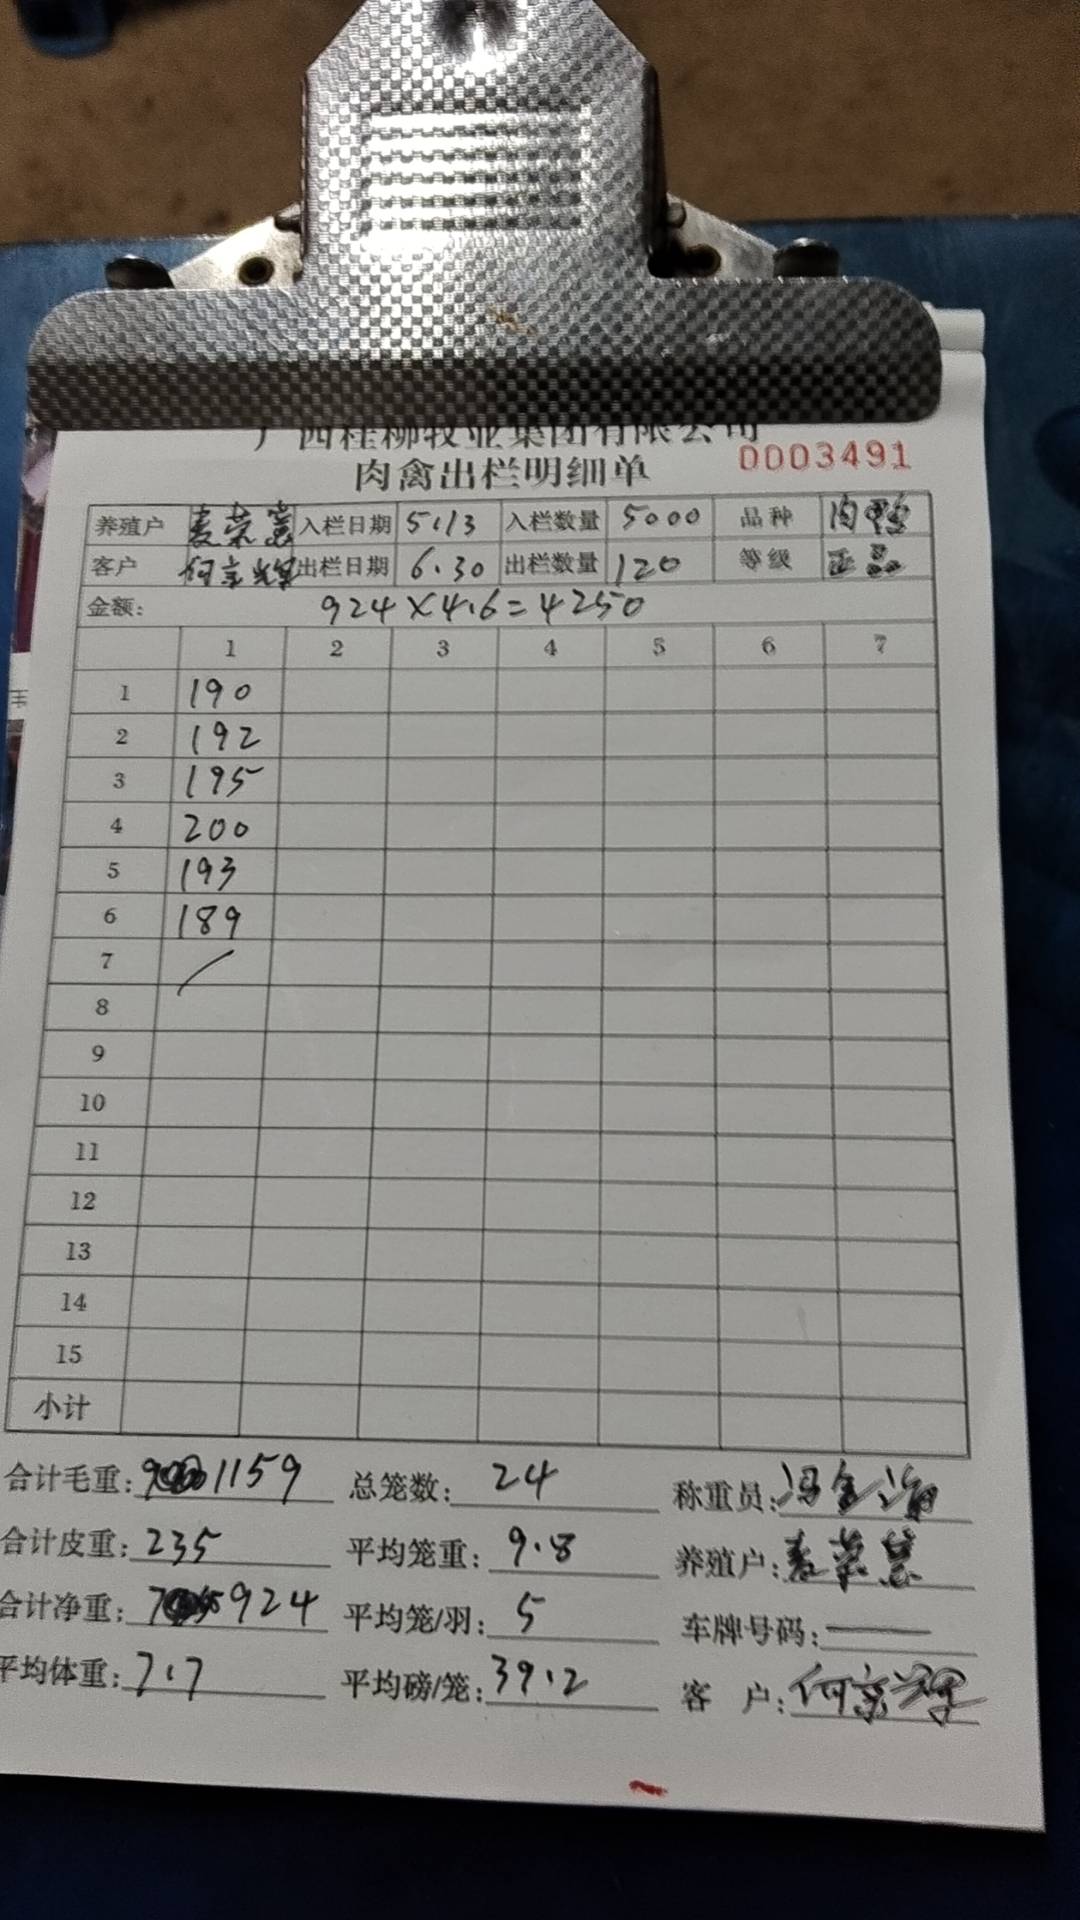 广西桂柳牧业集团有限公司
肉禽出栏明细单 0003491
养殖户 麦荣慧 入栏日期 5.13 入栏数量 5000 品种 肉鸭
客户 何京辉 出栏日期 6.30 出栏数量 120 等级 正品
金额: 924×4.6=4250
1 2 3 4 5 6 7
1 190
2 192
3 195
4 200
5 193
6 189
7 /
8
9
10
11
12
13
14
15
小计
合计毛重: 1159 总笼数: 24 称重员: 冯金海
合计皮重: 235 平均笼重: 9.8 养殖户: 麦荣慧
合计净重: 924 平均笼/羽: 5 车牌号码: —
平均体重: 7.7 平均磅/笼: 39.2 客 户: 何京辉